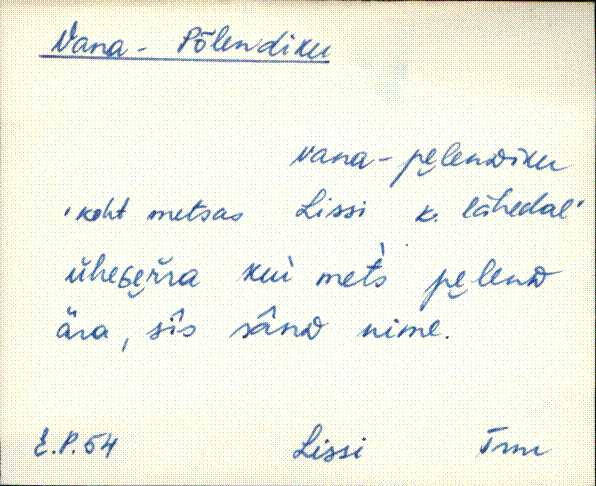 Vana-Põlendiku
vana-pe̮lenᴅiku
'koht metsas Lissi k. lähedal'
ühe kui met̀s pe̮lenᴅ
ära, sîs sânᴅ nime.
E.P.54 Lissi Trm